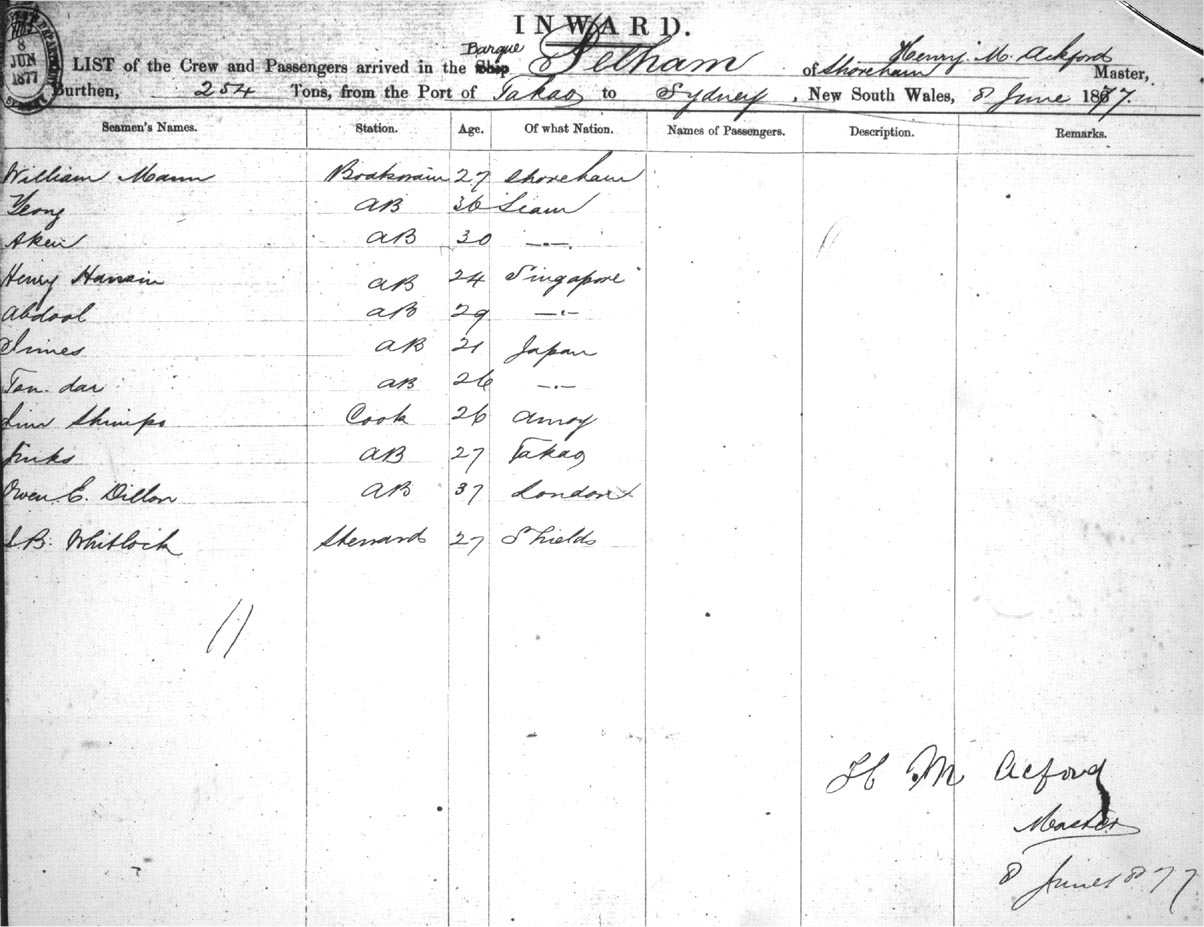 INWARD.
LIST of the Crew and Passengers arrived in the Ship Barque Pelham of Shoreham Henry M. Ackford Master,
Burthen, 254 Tons, from the Port of Takao to Sydney, New South Wales, 8 June 1877.
8 JUN 1877
Seamen's Names. Station. Age. Of what Nation. Names of Passengers. Description. Remarks.
William Mann Boatswain 27 Shoreham
Yeong AB 36 Siam
Aken AB 30 —"—
Henry Hansin AB 24 Singapore
Abdool AB 29 —"—
AB 21 Japan
Tan dar AB 26 —"—
Cook 26 Amoy
Jinks AB 27 Takao
Owen E. Dillon AB 37 London x
Whitlock Steward 27 Shields
11
H M Acford
Master
8 June 1877